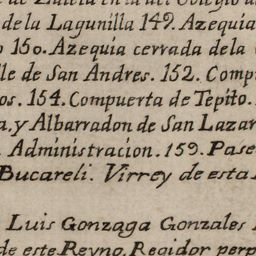 de la Lagunilla 149. Azequia
150. Azequia cerrada de la
de San Andres. 152. Comp
os. 154. Compuerta de Tepito.
y Albarradon de San Lazar
Administracion. 159. Pase
Bucareli. Virrey de esta
Luis Gonzaga Gonzales
de este Reyno. Regidor perp